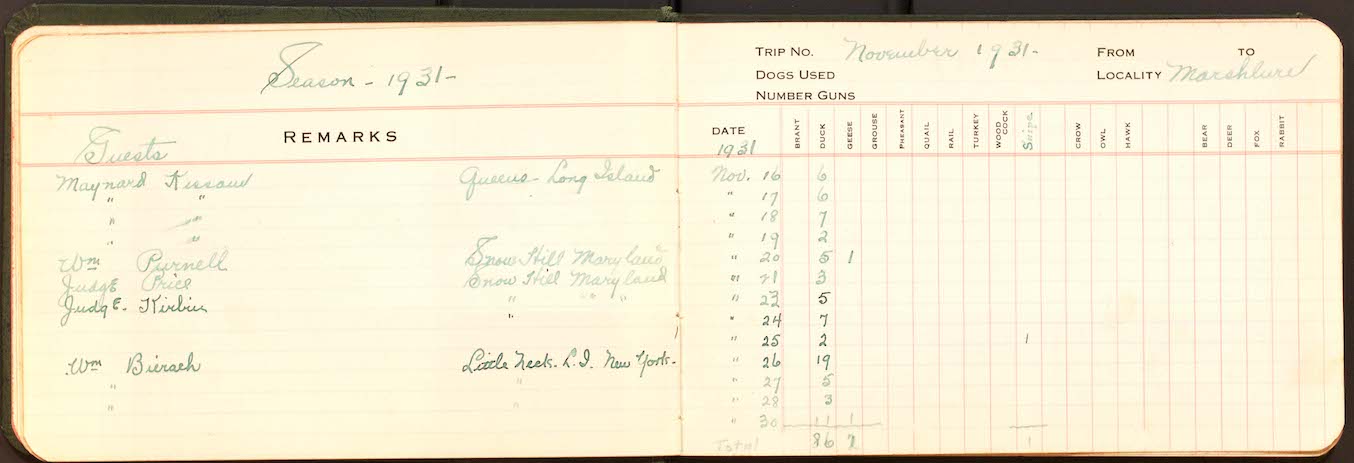 Season - 1931 -
REMARKS
Guests
Maynard Kissam Queens - Long Island
" "
" "
" "
Wm Purnell Snow Hill Maryland
Judge Price Snow Hill Maryland
Judge. Kirbin " " "
"
Wm Bierach Little Neck. L.I. New York.
" "
" "
TRIP NO. November 1931- FROM TO
DOGS USED LOCALITY Marshlure
NUMBER GUNS
DATE BRANT DUCK GEESE GROUSE PHEASANT QUAIL RAIL TURKEY WOOD COCK Snipe CROW OWL HAWK BEAR DEER FOX RABBIT
1931
Nov. 16 6
" 17 6
" 18 7
" 19 2
" 20 5 1
" 21 3
" 23 5
" 24 7
" 25 2 1
" 26 19
" 27 5
" 28 3
" 30 11 1
Total 86 2 1